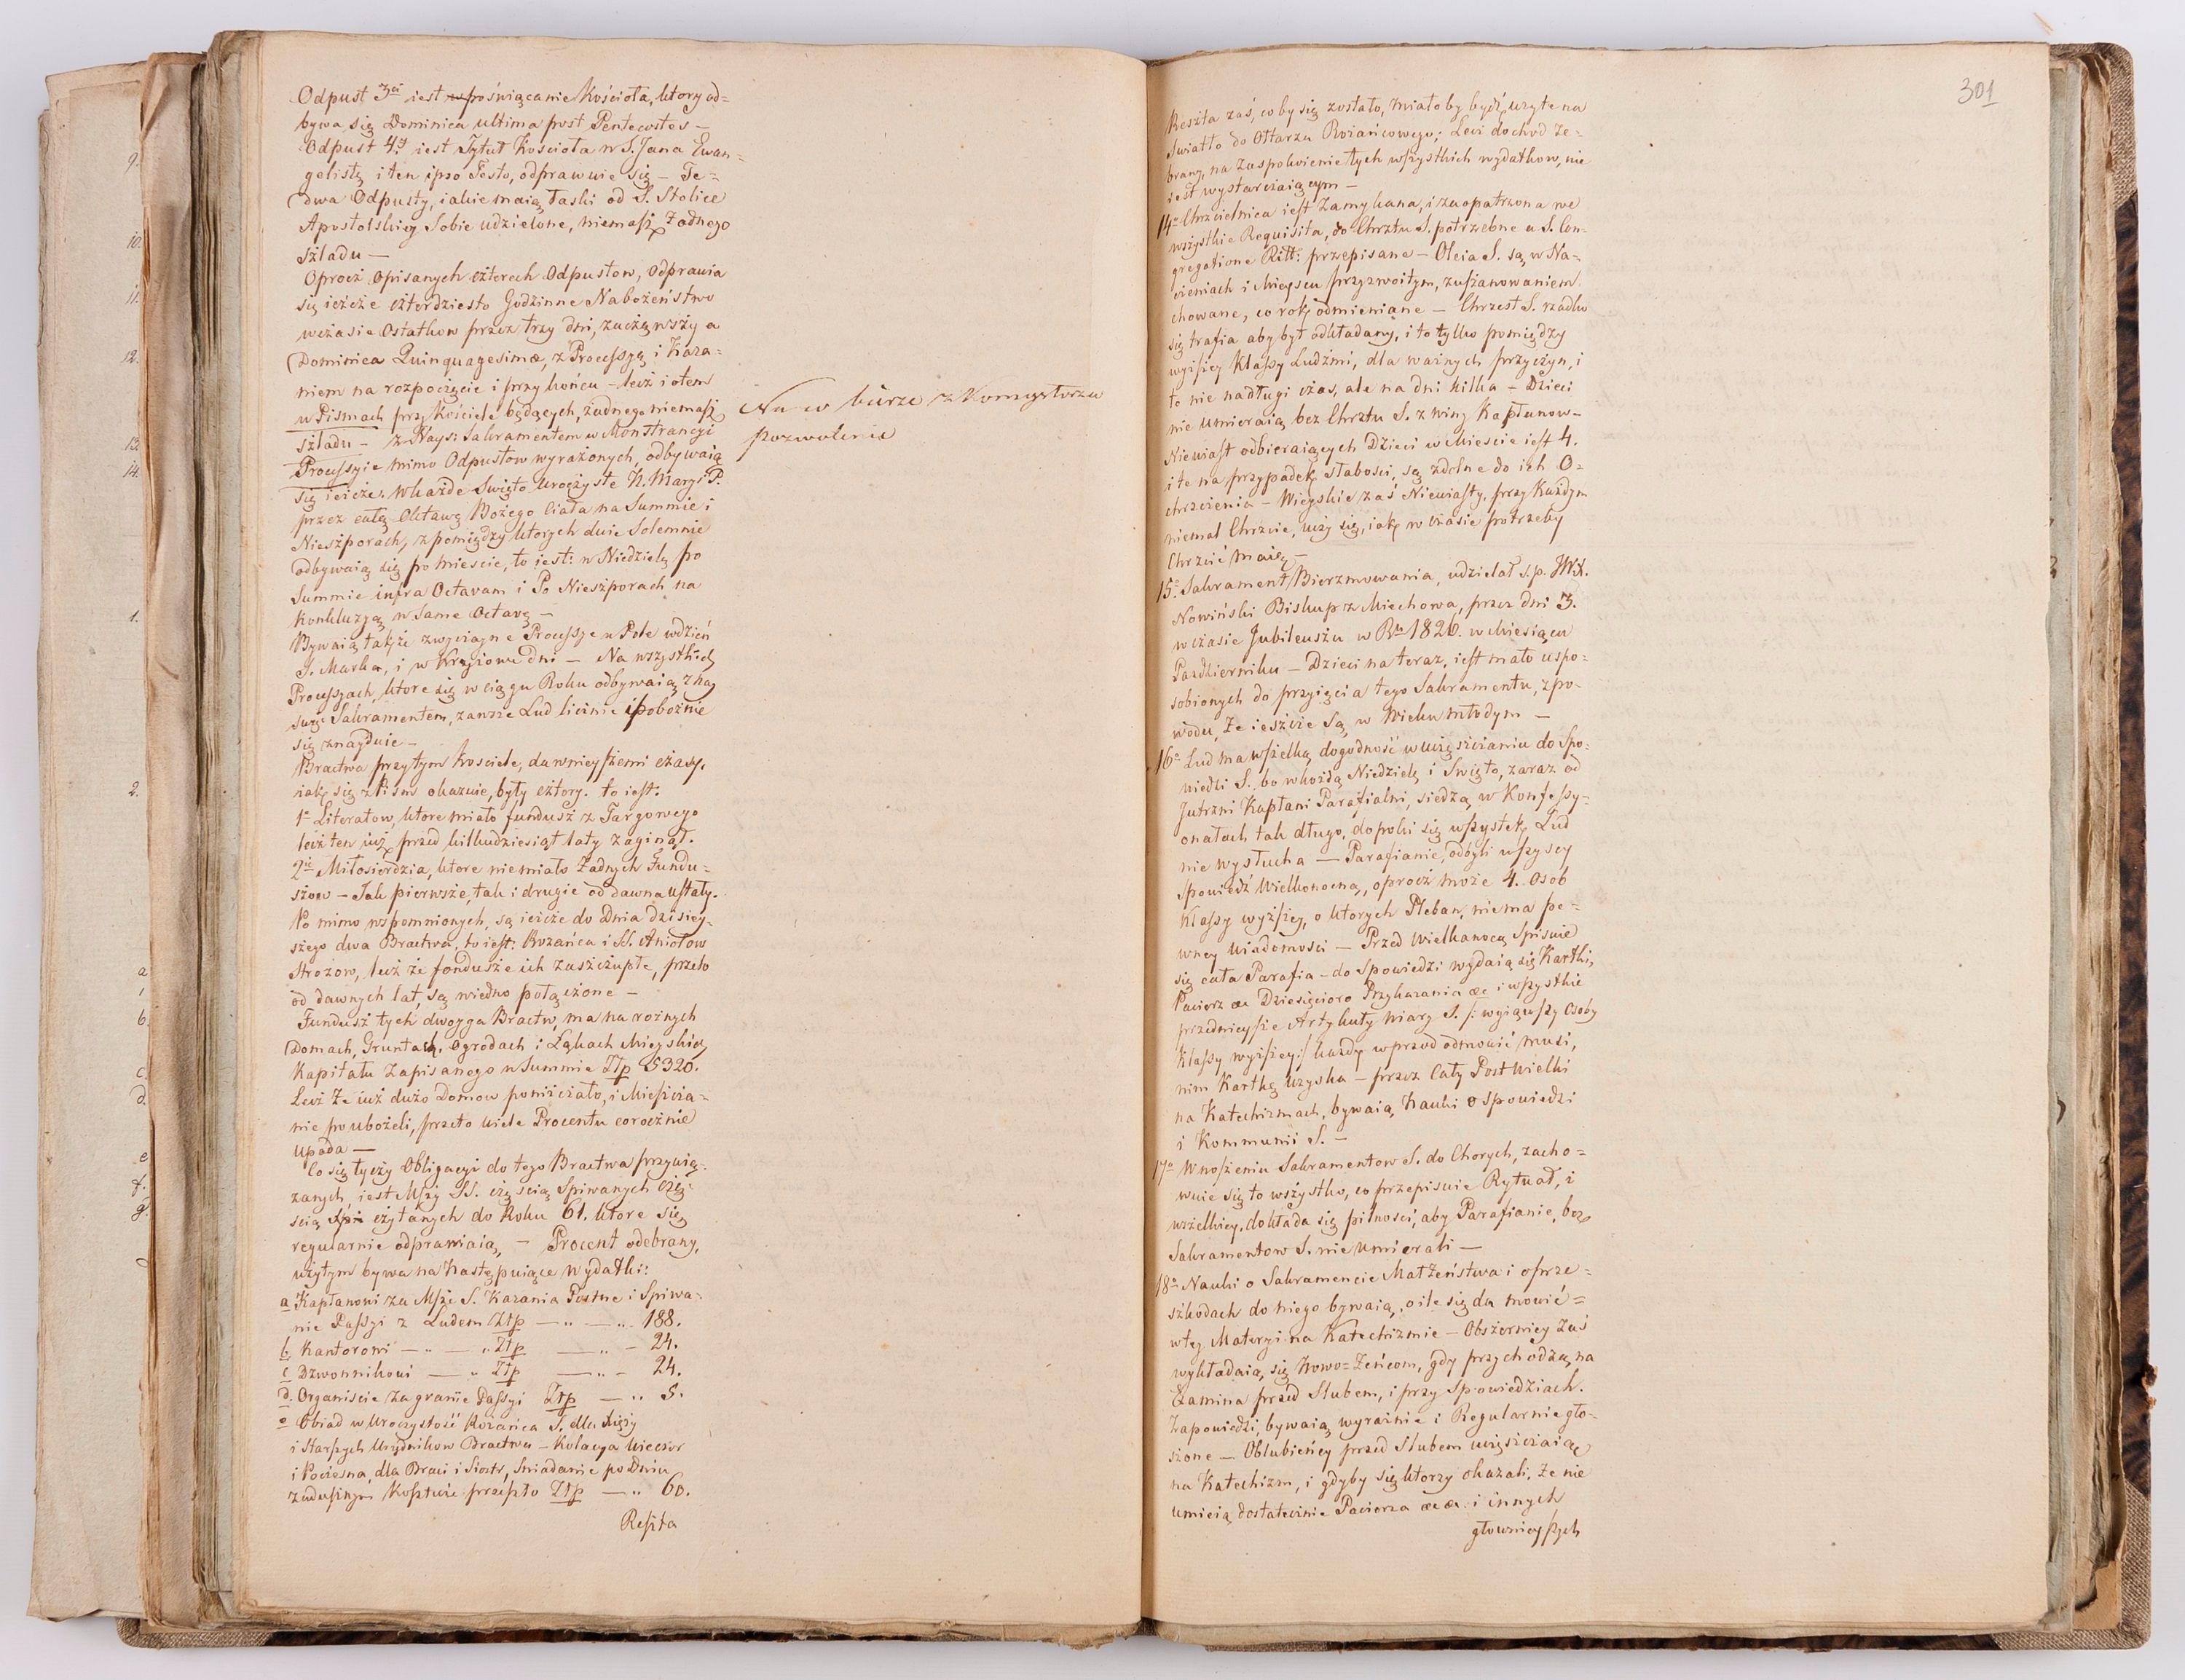 Odpust 3ci iest poświącanie Kościoła, ktory od=
bywa się Dominica ultima post Pentecostes —
Odpust 4ty iest Tytuł Kościoła w S. Jana Ewan=
gelistę i ten ipso Festo, odprawuie się — Te=
dwa Odpusty, iakie maią łaski od S. Stolice
Apostolskiey Sobie udzielone, niemasz żadnego
szladu —
Oprocz opisanych czterech Odpustow, odprawia
się ieszcze czterdziesto Godzinne Nabożeństwo
wczasie Ostatkow przez trzy dni, zacząwszy a
Dominica Quinquagesimæ, z Processyą i Kaza=
niem na rozpoczęcie i przy końcu — lecz i otem
w Pismach przy Kościele będących, żadnego niemasz
szladu — z Nays: Sakramentem w Monstrancyi
Processyie mimo Odpustow wyrażonych, odbywaią
się ieszcze: wkażde Swięto Uroczyste N. Maryi P.
przez całą Oktawę Bożego Ciała na Summie i
Nieszporach, z pomiędzy ktorych dwie Solemnie
odbywaią się po Mieście, to iest: w Niedzielę po
Summie infra Octavam i Po Nieszporach na
Konkluzyą w Same Octavę —
Bywaią także zwyczayne Processye w Pole wdzień
S. Marka, i w Krzyżowe dni — Na wszystkich
Processyach, ktore się w ciągu Roku odbywaią z Nay
sw: Sakramentem, zawsze Lud licznie i pobożnie
się znayduie —
Bractwa przy tym Kościele, dawnieyszemi czasy,
iak się z Pism okazuie, były cztery. to iest:
1o Literatow, ktore miało fundusz z Targowego
lecz ten iuż przed kilkudziesiąt laty zaginął.
2ie Miłosierdzia, ktore niemiało żadnych Fundu=
szow — Jak pierwsze, tak i drugie od dawna ustały.
No mimo wspomnionych, są ieszcze do Dnia dzisiey=
szego dwa Bractwa, to iest: Rozańca i SS. Aniołow
Strożow, lecz że fondusze ich zaszczupłe, przeto
od dawnych lat, są wiedno połączone —
Fundusz tych dwoyga Bractw, ma na rożnych
Domach, Gruntach, Ogrodach i Łąkach Mieyskich
Kapitału Zapisanego w Summie Złp 5320.
Lecz że iuż dużo Domow poniszczało, i Mieszcza=
nie pouboželi, przeto wiele Procentu corocznie
upada —
Co się tyczy Obligacyi do tego Bractwa przywią=
zanych, iest Mszy SS. częścią Spiwanych czę=
ścią czytanych do Roku 61. ktore się
regularnie odprawiaią, — Procent odebrany,
użytym bywa na Następuiące Wydatki:
a Kapłanowi za Msze S. Kazania Postne i Spiwa=
nie Passyi z Ludem Złp — „ — „ 188.
b Kantorowi — „ — „ Złp — „ — 24.
c Dzwonnikowi — „ Złp — „ — 24.
d. Organiście za granie Passyi Złp — „ 5.
e Obiad w Uroczystość Rozańca S. dla Xięży
i Starszych Urzędnikow Bractwa — Kolacya Wieczor
i Pociesna, dla Braci i Siostr, Sniadanie po Dniu
zadusznym Kosztuie przeszło Złp — „ 60.
Reszta
Na w bierze z Konsystorza
pozwolenie
301
Reszta zaś, co by się zostało, miałoby bydź użyte na
Swiatło do Ołtarza Rożańcowego; Lecz dochod ze=
brany, na Zaspokoienie tych wszystkich wydatkow, nie
iest wystarczaiącym —
14o Chrzcielnica iest Zamykana, i zaopatrzona we
wszystkie Requisita, do Chrztu S. potrzebne a S. Con=
gregatione Ritt: przepisane — Oleia S. są, w Na=
czeniach i Mieyscu przyzwoitym, zuszanowaniem
chowane, co rok odmieniane — Chrzest S. rzadko
się trafia aby był odkładany, i to tylko pomiędzy
wyższey Klassy Ludźmi, dla ważnych przyczyn, i
to nie nadługi czas, ale na dni kilka — Dzieci
nie umieraią bez Chrztu S. z winy Kapłanow —
Niewiast odbieraiących Dzieci w Mieście iest 4.
i te na przypadek słabości, są zdolne do ich O=
chrzczenia — Wieyskie zaś Niewiasty, przy Każdym
niemal Chrzcie, uczy się, iak w czasie potrzeby
Chrzcić maią —
15o Sakrament Bierzmowania, udzielał s. p. JWX.
Nowiński Biskup z Miechowa, przez dni 3.
w czasie Jubileuszu w Rku 1826. w Miesiącu
Pazdzierniku — Dzieci na teraz, iest mało uspo=
sobionych do przyięcia tego Sakramentu, z po=
wodu, że ieszcze Są, w Wieku młodym —
16o Lud ma wszelką dogodność w uczęszczaniu do Spo=
wiedzi S. bo wkożdą Niedzielę i Swięto, zaraz od
Jutrzni Kapłani Parafialni, siedzą w Konfessy=
onałach tak długo, dopoki się wszystek Lud
nie wysłucha — Parafianie, odbyli wszyscy
Spowiedź Wielkonocną, oprocz może 4. Osob
Klassy wyższey, o ktorych Pleban, niema pe=
wney wiadomości — Przed Wielkanocą Spisuie
się cała Parafia — do Spowiedzi wydaią się Kartki,
Pacierz &c Dziesięcioro Przykazania &c i wszystkie
przednieysze Artykuły Wiary S. /: wyiąwszy Osoby
Klassy wyższey :/ każdy wprzod odmowić musi,
nim Kartkę Uzyska — przez Cały Post Wielki
na Katechizmach, bywaią Nauki o Spowiedzi
i Kommunii S. —
17o Wnoszeniu Sakramentow S. do Chorych, zacho=
wuie się to wszystko, co przepisuie Rytuał, i
wszelkiey, dokłada się pilności, aby Parafianie, bez
Sakramentow S. nie umierali —
18o Nauki o Sakramencie Małżeństwa i oprze=
szkodach do niego bywaią, o ile się da mowić =
wtey Materyi na Katechizmie — Obszerniey zaś
wykładaią się Nowo=Żeńcom, gdy przychodzą, na
Examina przed Slubem, i przy Spowiedziach.
Zapowiedzi, bywaią wyraźnie i Regularnie gło=
szone — Oblubieńcy przed Slubem uczęszczaią
na Katechizm, i gdyby się ktorzy okazali, że nie
umieią dostatecznie Pacierza &c &c i innych
głownieyszych